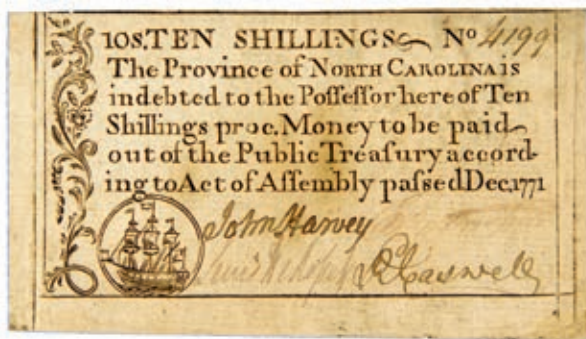 10S. TEN SHILLINGS No 4199
The Province of NORTH CAROLINA is
indebted to the Poſſeſſor here of Ten
Shillings proc. Money to be paid
out of the Public Treaſury accord-
ing to Act of Aſſembly paſsed Dec. 1771
John Harvey
R Caswell